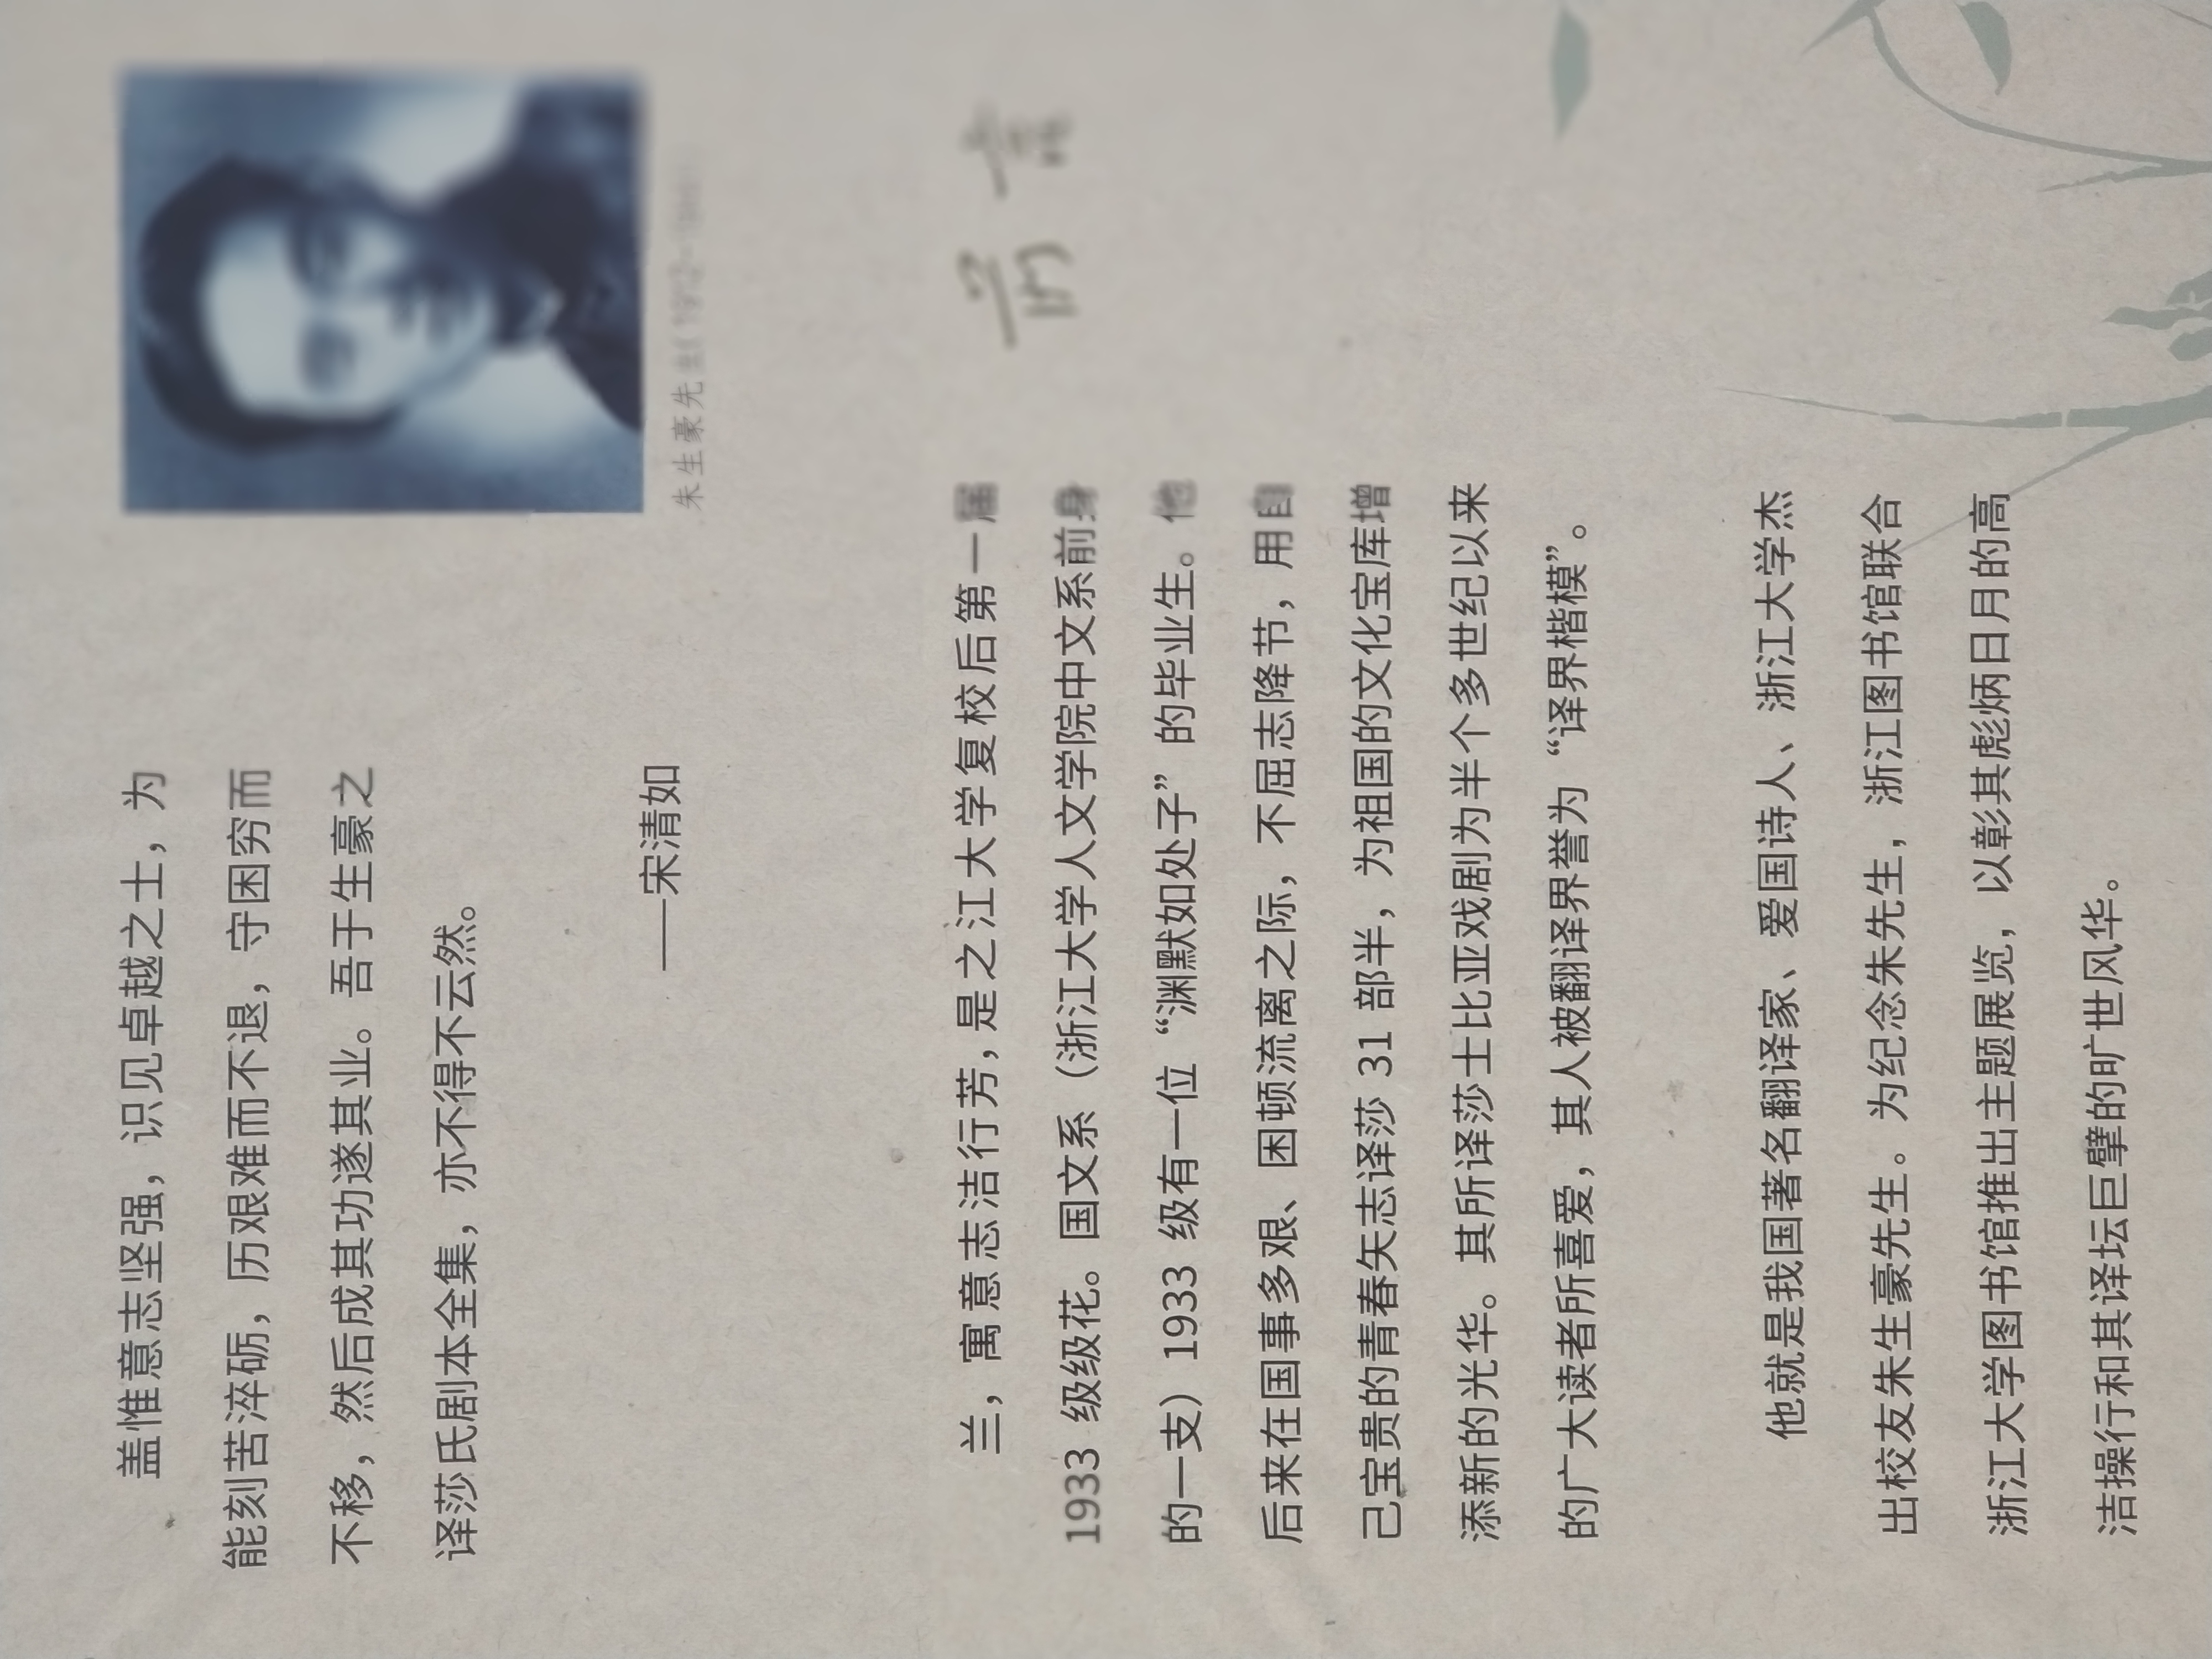 盖惟意志坚强，识见卓越之士，为
能刻苦淬砺，历艰难而不退，守困穷而
不移，然后成其功遂其业。吾于生豪之
译莎氏剧本全集，亦不得不云然。
——宋清如
朱生豪先生(1912-1944)
前言
兰，寓意志洁行芳，是之江大学复校后第一届
1933 级级花。国文系（浙江大学人文学院中文系前身
的一支）1933 级有一位“渊默如处子”的毕业生。他
后来在国事多艰、困顿流离之际，不屈志降节，用自
己宝贵的青春矢志译莎 31 部半，为祖国的文化宝库增
添新的光华。其所译莎士比亚戏剧为半个多世纪以来
的广大读者所喜爱，其人被翻译界誉为“译界楷模”。
他就是我国著名翻译家、爱国诗人、浙江大学杰
出校友朱生豪先生。为纪念朱先生，浙江图书馆联合
浙江大学图书馆推出主题展览，以彰其彪炳日月的高
洁操行和其译坛巨擘的旷世风华。